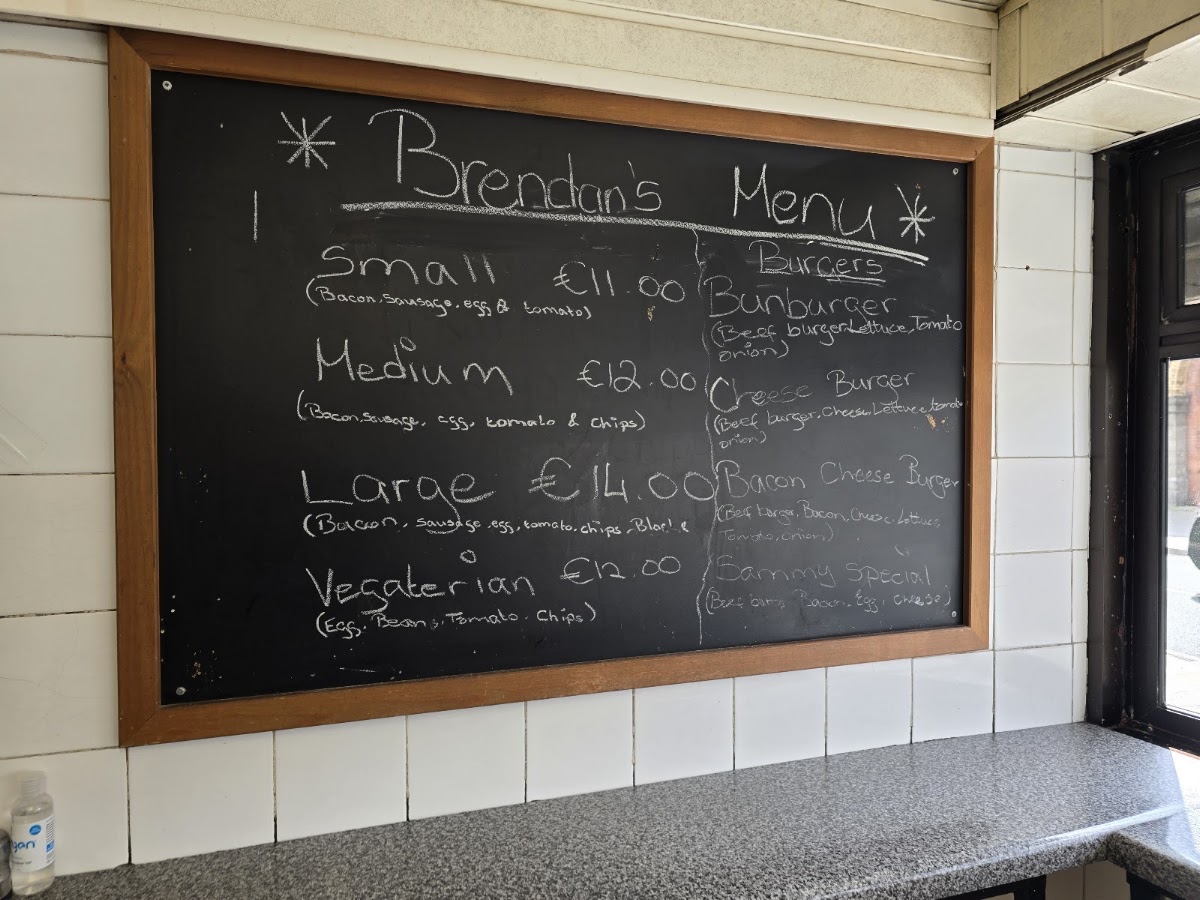 * Brendan's Menu *
Small €11.00
(Bacon, Sausage, egg & tomato)
Medium €12.00
(Bacon, Sausage, egg, tomato & chips)
Large €14.00
(Bacon, sausage, egg, tomato, chips,
Vegaterian €12.00
(Egg, Beans, Tomato, Chips)
Burgers
Bunburger
(Beef burger, Lettuce, Tomato
onion)
Cheese Burger
(Beef burger, Cheese, Lettuce, tomato
onion)
Bacon Cheese Burger
(Beef burger, Bacon, Cheese, Lettuce,
Tomato, onion)
Sammy special
Bacon, Egg, cheese)